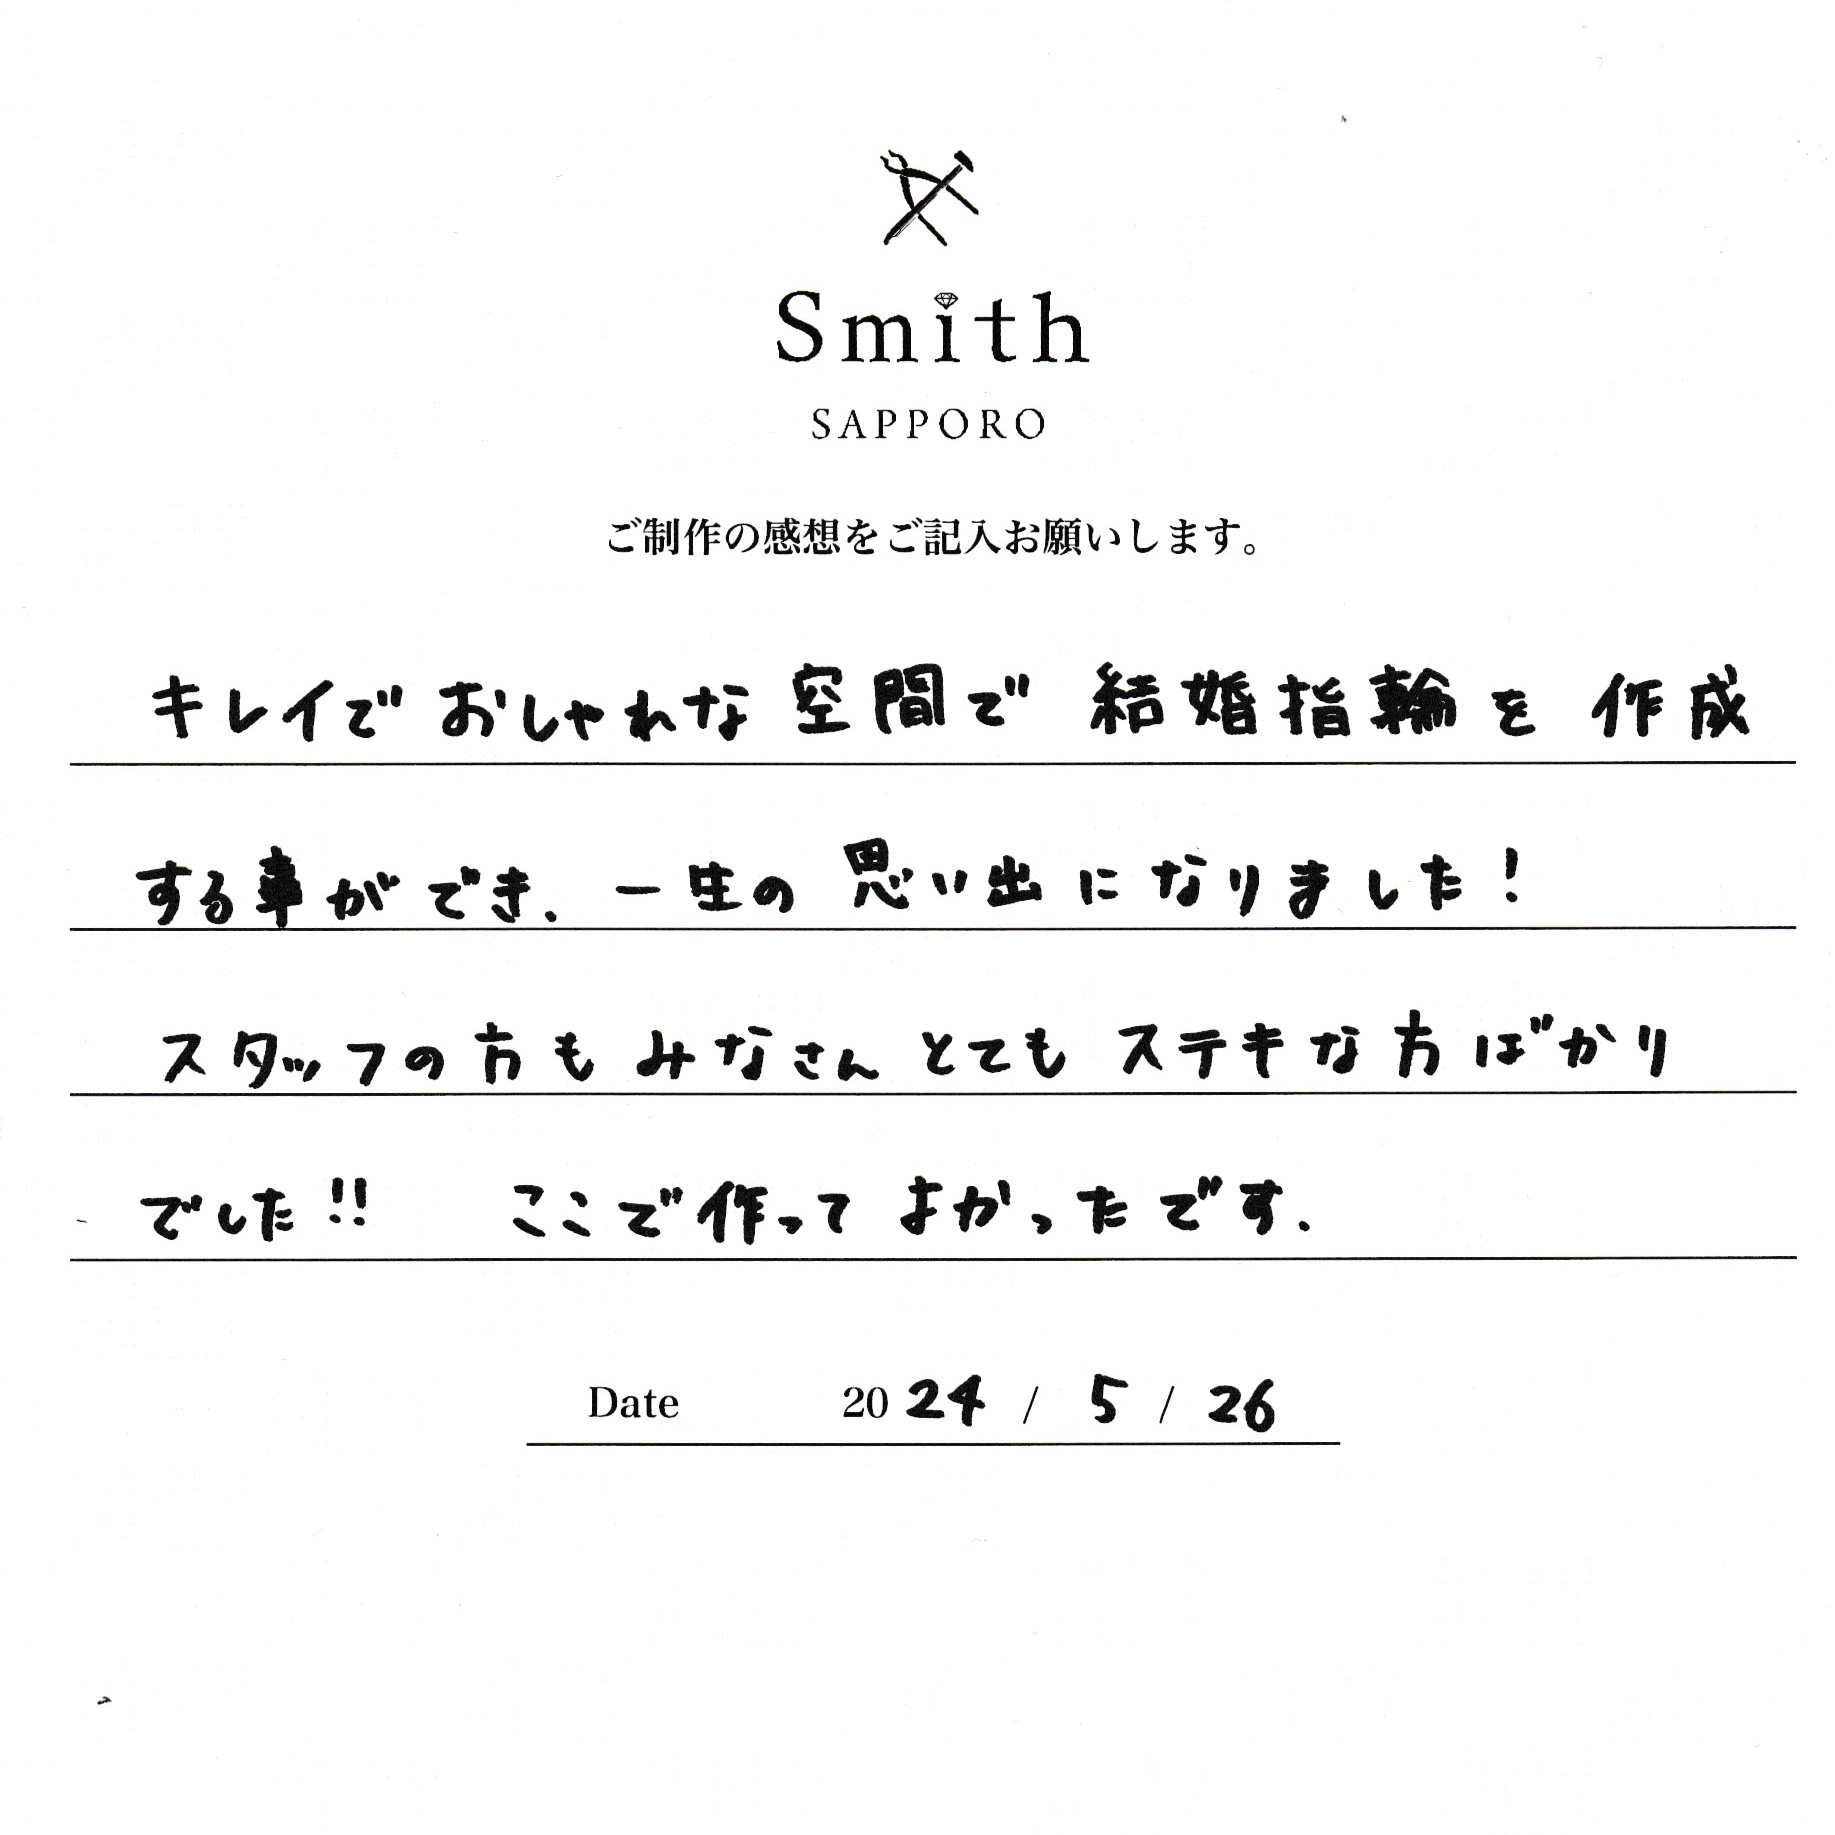 Smith
SAPPORO
ご制作の感想をご記入お願いします。
キレイで おしゃれな 空間で 結婚指輪を 作成
する事ができ. 一生の 思い出になりました!
スタッフの方も みなさん とても ステキな方ばかり
でした!! ここで作って よかったです.
Date 2024 / 5 / 26